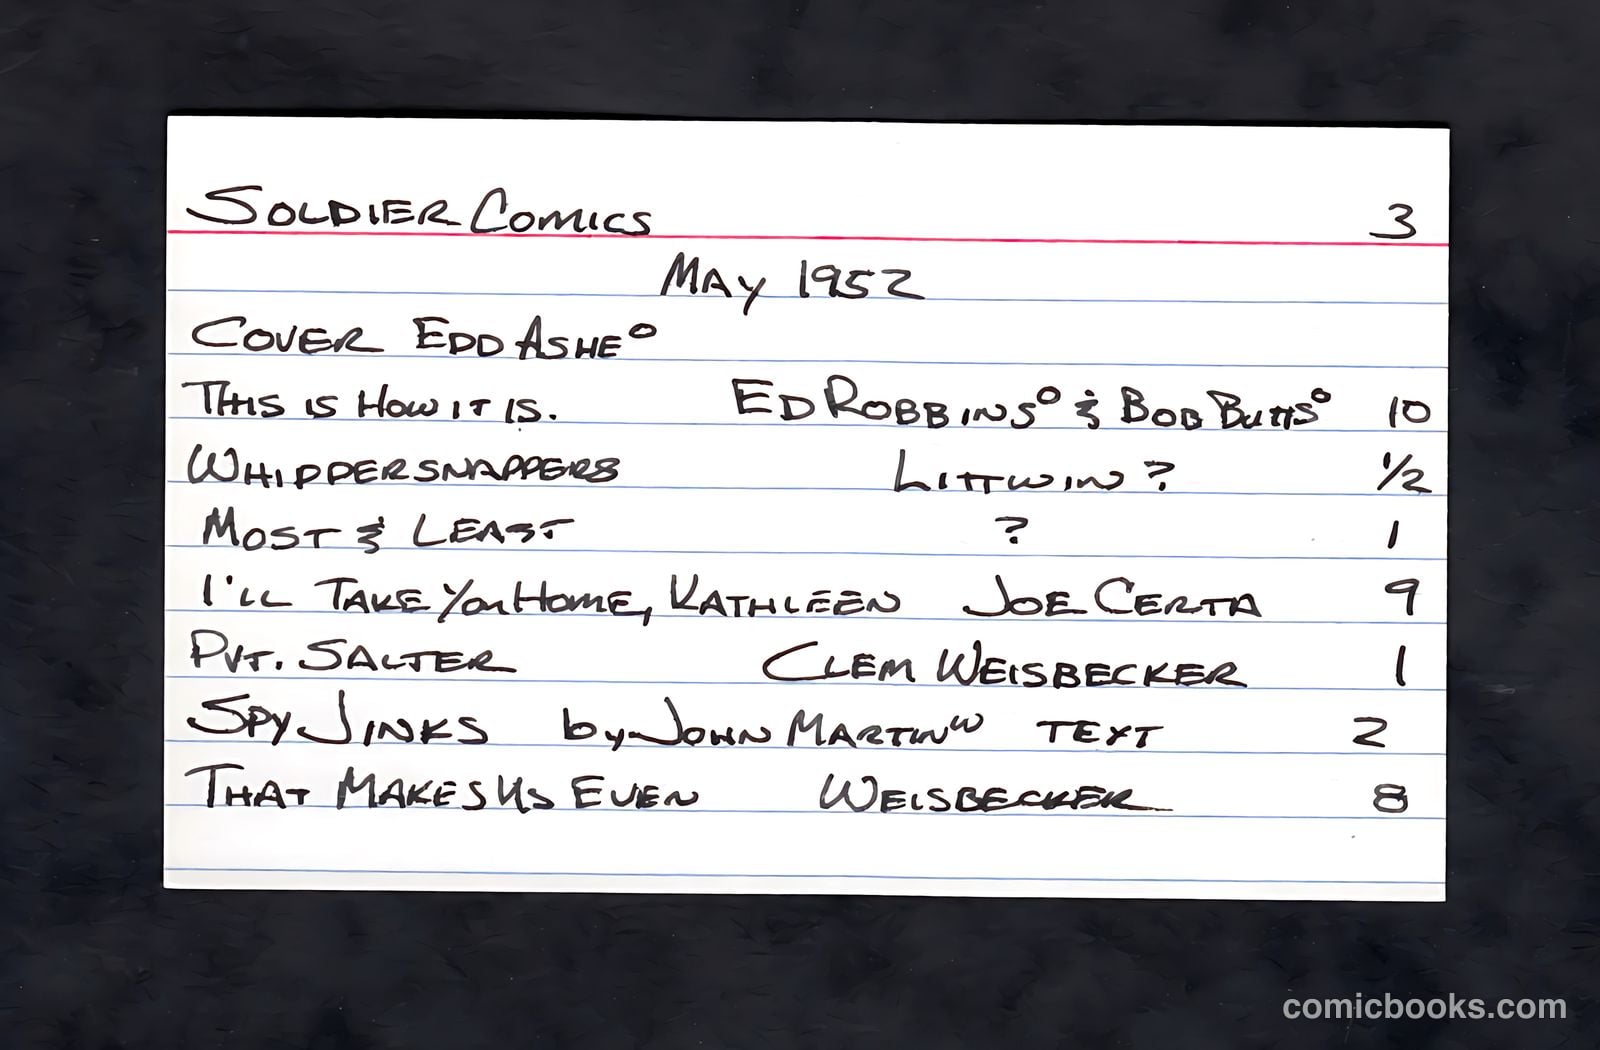 SOLDIER COMICS 3
MAY 1952
COVER EDD ASHE°
THIS IS HOW IT IS. ED ROBBINS° & BOB BUTTS° 10
WHIPPERSNAPPERS LITTWIN ? 1/2
MOST & LEAST ? 1
I'LL TAKE YOU HOME, KATHLEEN JOE CERTA 9
PVT. SALTER CLEM WEISBECKER 1
SPY JINKS by JOHN MARTIN ʷ TEXT 2
THAT MAKES US EVEN WEISBECKER 8
comicbooks.com